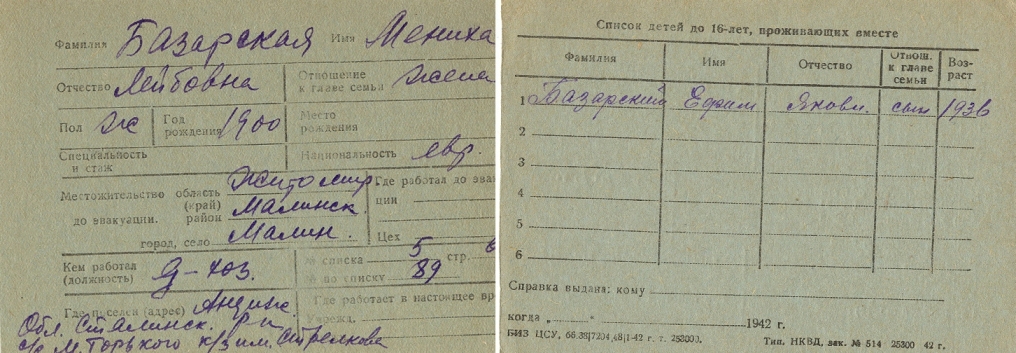 Фамилия Базарская Имя Мениха
Отчество Лейбовна Отношение к главе семьи жена
Пол Ж Год рождения 1900 Место рождения
Специальность и стаж Национальность евр.
Местожительство до эвакуации. область (край) Житомир Где работал до эвакуации
район Малинск.
город, село Малин. Цех
Кем работал (должность) Д-хоз. № списка 5 стр. 6
№ по списку 89
Где поселен (адрес) Андиж. Где работает в настоящее вр
Обл. Сталинск. р-н Учрежд.
с/с М. Горького к/з им. Стрелкова
Список детей до 16-лет, проживающих вместе
Фамилия Имя Отчество Отнош. к главе семьи Возраст
1 Базарский Ефим Яковл. сын 1936
2
3
4
5
6
Справка выдана: кому
когда „ “ 1942 г.
БИЗ ЦСУ, Тип. НКВД, зак. № 514 25300 42 г.